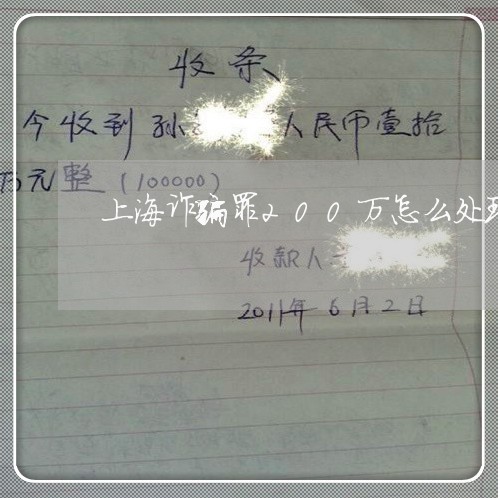 收条
今收到孙 人民币壹拾
万元整(100000)
上海诈骗罪200万怎么处理
收款人
2011年6月2日